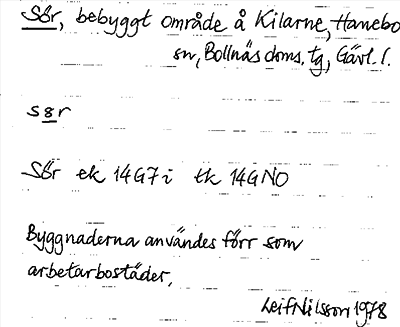 Sör, bebyggt område å Kilarne, Hanebo
sn, Bollnäs doms. tg, Gävl. l.
sör
Sör ek 14G7i tk 14GNO
Byggnaderna användes förr som
arbetarbostäder.
Leif Nilsson 1978